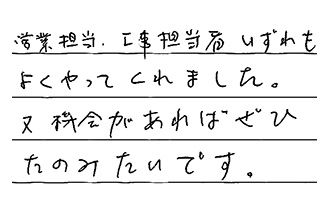 営業担当、工事担当者いずれも
よくやってくれました。
又機会があればぜひ
たのみたいです。